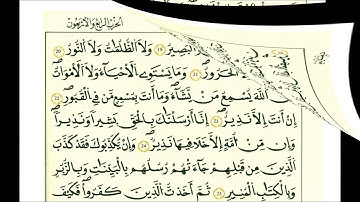 الحزب الرابع والأربعون
بَصِيرُ 19 وَلَا الظُّلُمَاتُ وَلَا النُّورُ 20
الْحَرُورُ 21 وَمَا يَسْتَوِي الْأَحْيَاءُ وَلَا الْأَمْوَاتُ
اللَّهَ يُسْمِعُ مَنْ يَشَاءُ وَمَا أَنتَ بِمُسْمِعٍ مَّن فِي الْقُبُورِ 22
إِنْ أَنتَ إِلَّا نَذِيرٌ 23 إِنَّا أَرْسَلْنَاكَ بِالْحَقِّ بَشِيرًا وَنَذِيرًا
وَإِن مِّنْ أُمَّةٍ إِلَّا خَلَا فِيهَا نَذِيرٌ 24 وَإِن يُكَذِّبُوكَ فَقَدْ كَذَّبَ
الَّذِينَ مِن قَبْلِهِمْ جَاءَتْهُمْ رُسُلُهُم بِالْبَيِّنَاتِ وَبِالزُّبُرِ
وَبِالْكِتَابِ الْمُنِيرِ 25 ثُمَّ أَخَذْتُ الَّذِينَ كَفَرُوا فَكَيْفَ